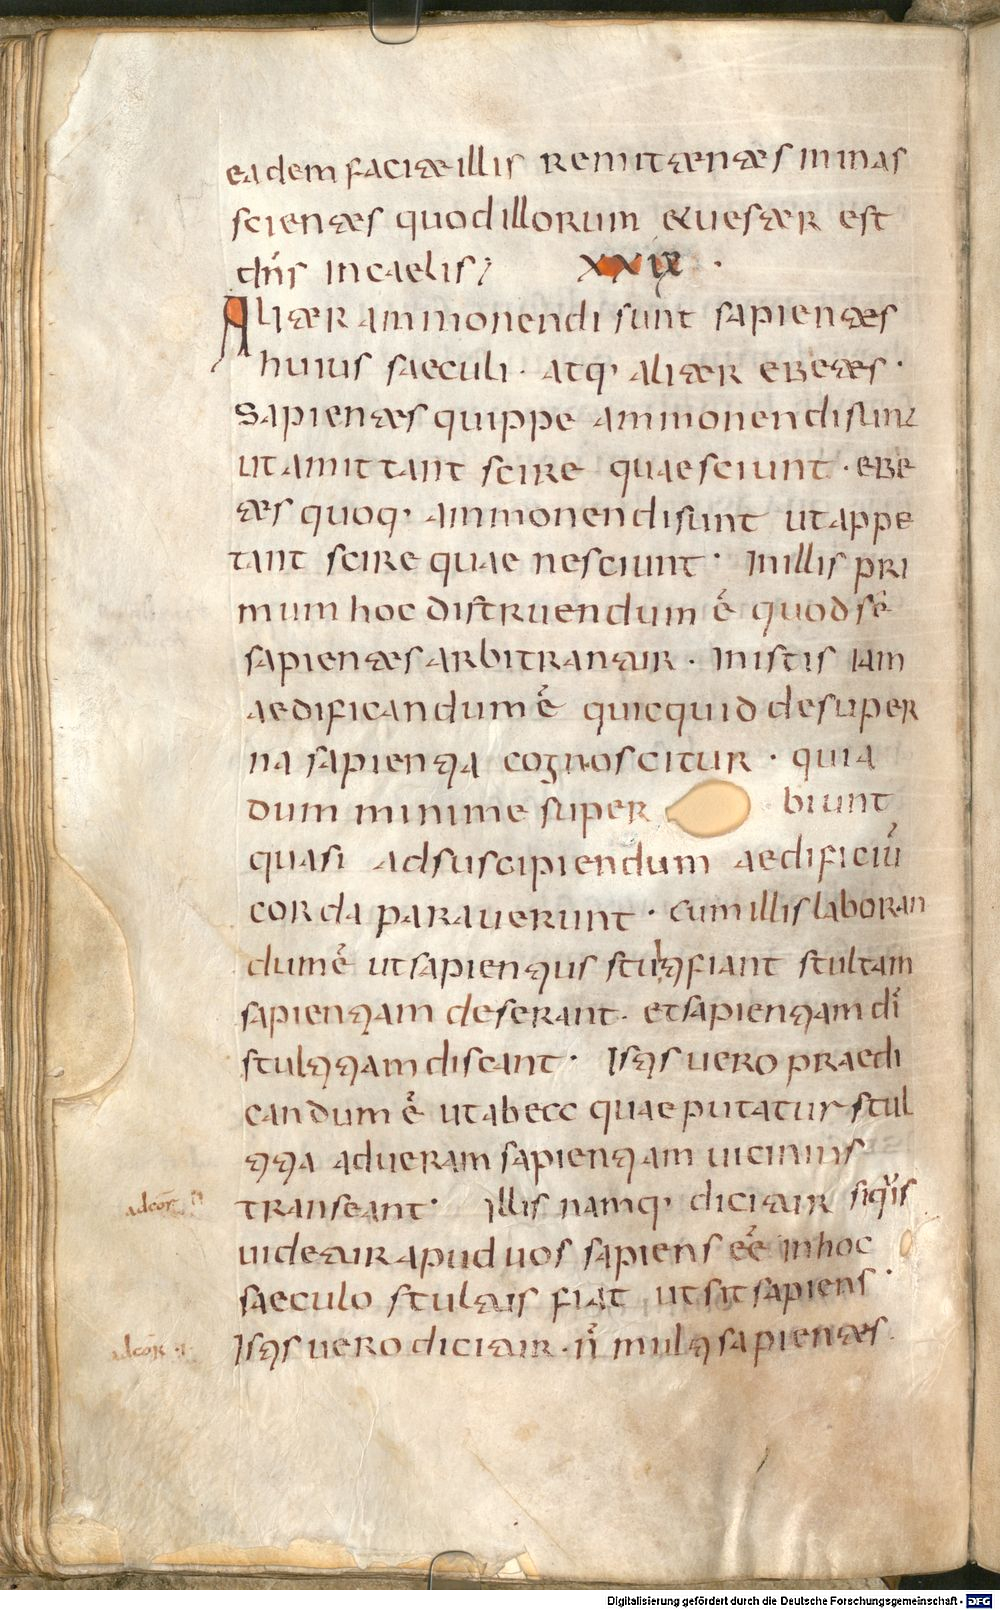 eadem facitæ illis remittentes minas
scientes quod illorum & uester est
dn̄s in caelis; XXIX .
Aliter ammonendi sunt sapientes
huius saeculi · atq· aliter ebetes ·
Sapientes quippe ammonendi sunt
ut amittant scire quae sciunt · ebe
tes quoq· ammonendi sunt ut appe
tant scire quae nesciunt · In illis pri
mum hoc distruendum ē quod sē
sapientes arbitrantur · In istis iam
aedificandum ē quicquid de super
na sapientia cognoscitur · quia
dum minime super biunt
quasi ad suscipiendum aedificiū
corda parauerunt · cum illis laboran
dum ē ut sapientius stulti fiant stultam
sapientiam deserant · et sapientiam dī
stultitiam discant · Istis uero praedi
candum ē ut ab ec c quae putatur stul
titia ad ueram sapientiam uicinius
adcor̄ transeant · Illis namq· dicitur siquis
uidetur apud uos sapiens eē in hoc
saeculo stultus fiat ut sit sapiens ·
adcor̄ ·i· Istis uero dicitur · n̄ multi sapientes ·
Digitalisierung gefördert durch die Deutsche Forschungsgemeinschaft - DFG